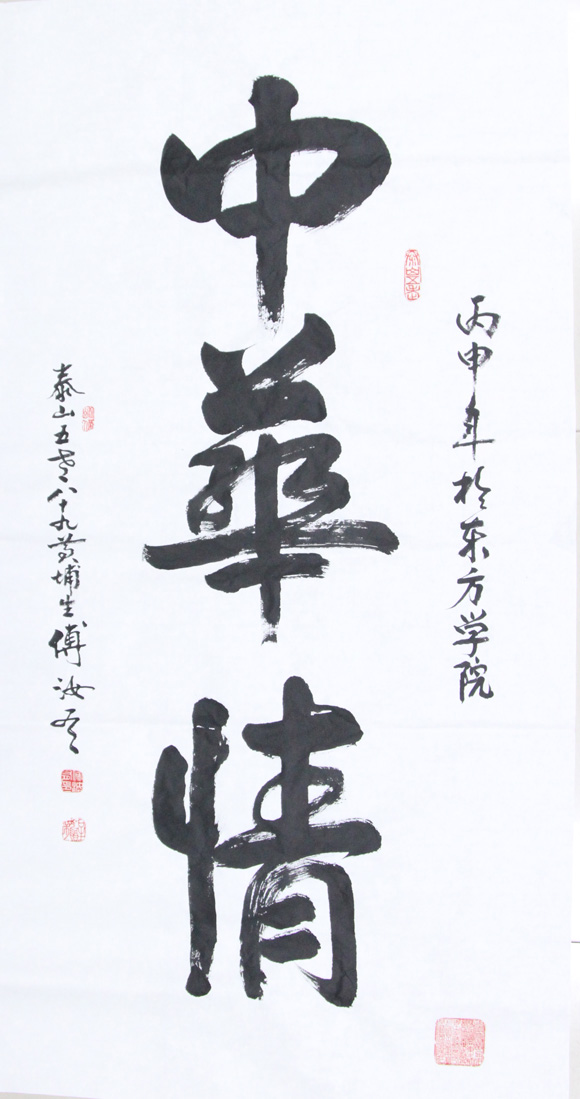 丙申年於东方学院
中華情
泰山五老八十九黄埔生傅汝吾